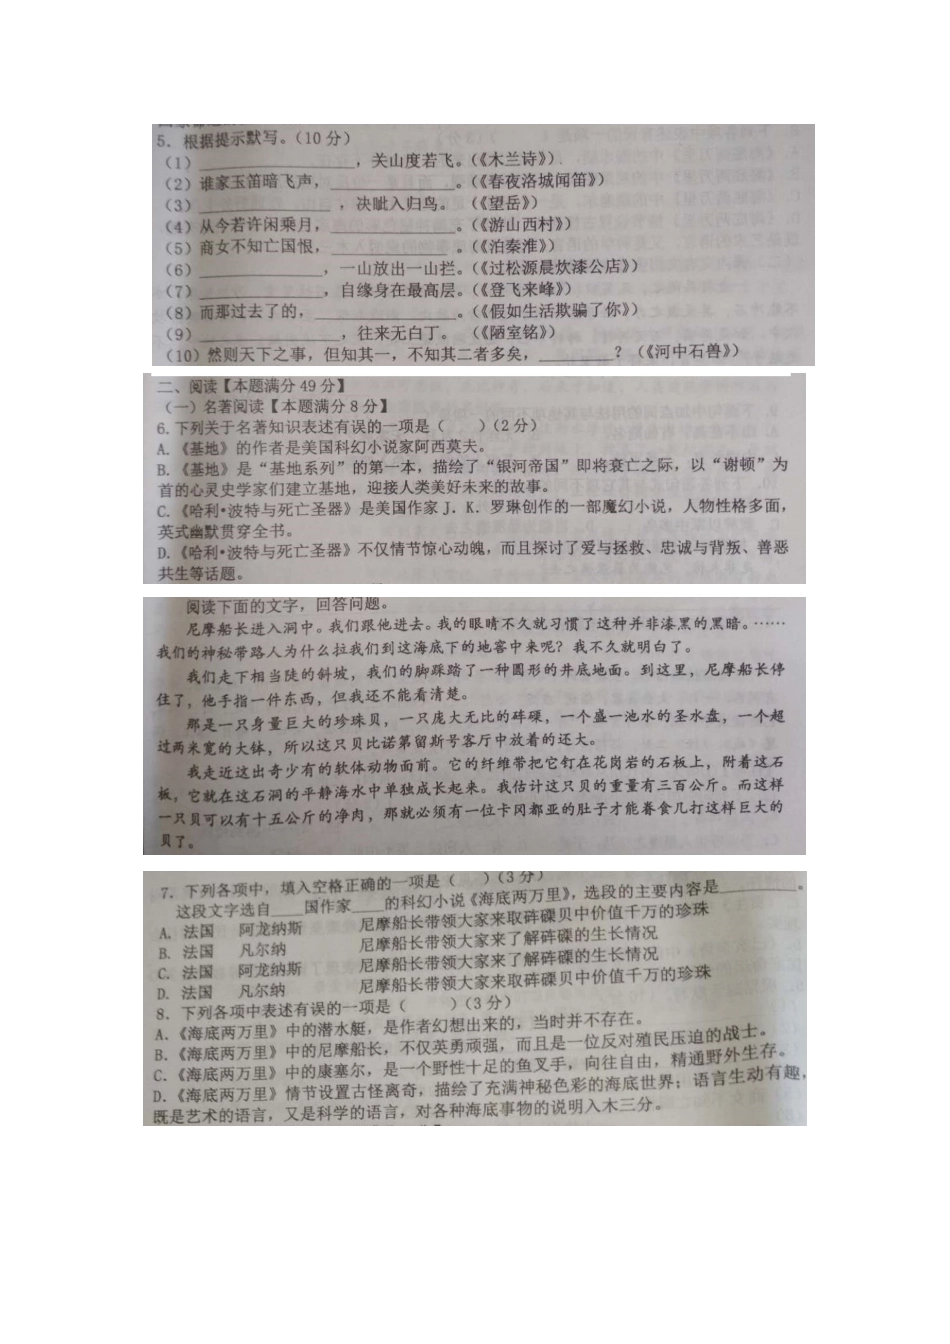 5. 根据提示默写。(10 分)
(1)______________，关山度若飞。(《木兰诗》)
(2)谁家玉笛暗飞声，____________。(《春夜洛城闻笛》)
(3)____________，决眦入归鸟。(《望岳》)
(4)从今若许闲乘月，____________。(《游山西村》)
(5)商女不知亡国恨，____________。(《泊秦淮》)
(6)____________，一山放出一山拦。(《过松源晨炊漆公店》)
(7)____________，自缘身在最高层。(《登飞来峰》)
(8)而那过去了的，____________。(《假如生活欺骗了你》)
(9)____________，往来无白丁。(《陋室铭》)
(10)然则天下之事，但知其一，不知其二者多矣，________？(《河中石兽》)
二、阅读【本题满分 49 分】
(一)名著阅读【本题满分 8 分】
6.下列关于名著知识表述有误的一项是（　　）(2 分)
A.《基地》的作者是美国科幻小说家阿西莫夫。
B.《基地》是“基地系列”的第一本，描绘了“银河帝国”即将衰亡之际，以“谢顿”为
首的心灵史学家们建立基地，迎接人类美好未来的故事。
C.《哈利•波特与死亡圣器》是美国作家 J. K. 罗琳创作的一部魔幻小说，人物性格多面，
英式幽默贯穿全书。
D.《哈利•波特与死亡圣器》不仅情节惊心动魄，而且探讨了爱与拯救、忠诚与背叛、善恶
共生等话题。
阅读下面的文字，回答问题。
尼摩船长进入洞中。我们跟他进去。我的眼睛不久就习惯了这种并非漆黑的黑暗。……
我们的神秘带路人为什么拉我们到这海底下的地窖中来呢？我不久就明白了。
我们走下相当陡的斜坡，我们的脚踩踏了一种圆形的井底地面。到这里，尼摩船长停
住了，他手指一件东西，但我还不能看清楚。
那是一只身量巨大的珍珠贝，一只庞大无比的砗磲，一个盛一池水的圣水盘，一个超
过两米宽的大钵，所以这只贝比诺第留斯号客厅中放着的还大。
我走近这出奇少有的软体动物面前。它的纤维带把它钉在花岗岩的石板上，附着这石
板，它就在这石洞的平静海水中单独成长起来。我估计这只贝的重量有三百公斤。而这样
一只贝可以有十五公斤的净肉，那就必须有一位卡冈都亚的肚子才能吞食几打这样巨大的
贝了。
7. 下列各项中，填入空格正确的一项是（　　）(3 分)
这段文字选自____国作家____的科幻小说《海底两万里》，选段的主要内容是__________。
A. 法国　阿龙纳斯　尼摩船长带领大家来取砗磲贝中价值千万的珍珠
B. 法国　凡尔纳　尼摩船长带领大家来了解砗磲的生长情况
C. 法国　阿龙纳斯　尼摩船长带领大家来了解砗磲的生长情况
D. 法国　凡尔纳　尼摩船长带领大家来取砗磲贝中价值千万的珍珠
8. 下列各项中表述有误的一项是（　　）(3 分)
A.《海底两万里》中的潜水艇，是作者幻想出来的，当时并不存在。
B.《海底两万里》中的尼摩船长，不仅英勇顽强，而且是一位反对殖民压迫的战士。
C.《海底两万里》中的康塞尔，是一个野性十足的鱼叉手，向往自由，精通野外生存。
D.《海底两万里》情节设置古怪离奇，描绘了充满神秘色彩的海底世界；语言生动有趣，
既是艺术的语言，又是科学的语言，对各种海底事物的说明入木三分。